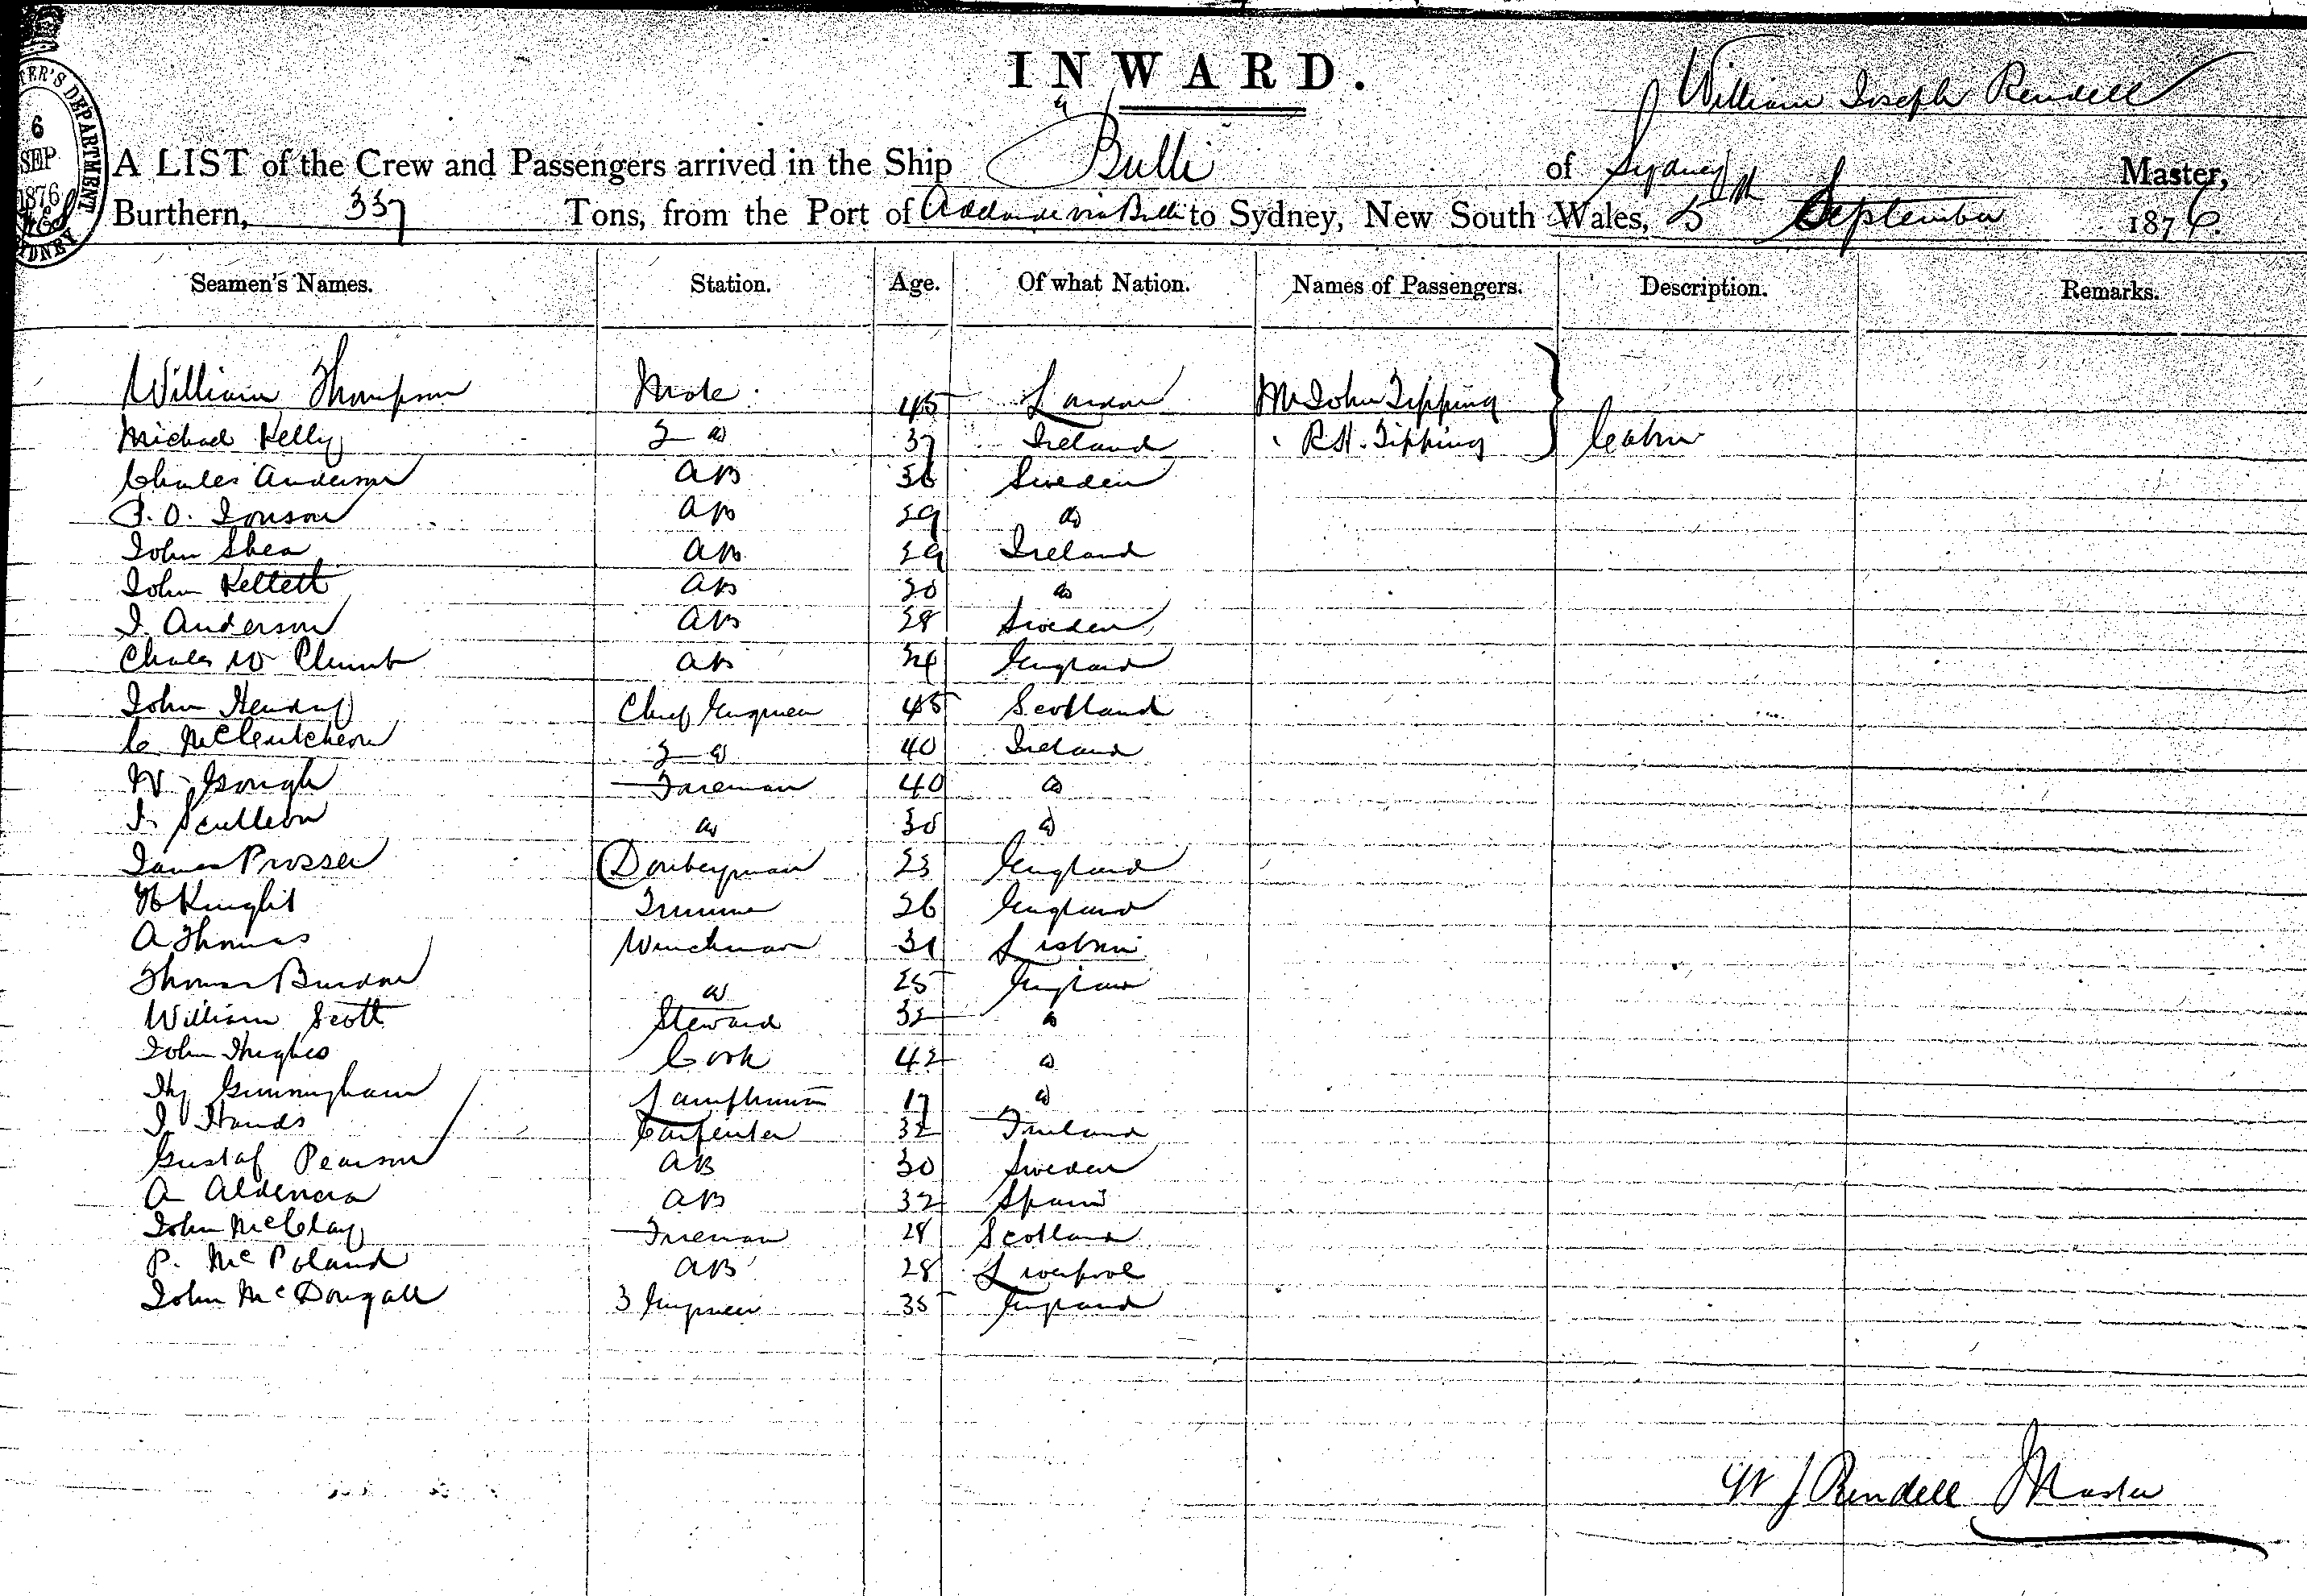 INWARD.
William Joseph Rendell
A LIST of the Crew and Passengers arrived in the Ship Bulli of Sydney Master,
Burthern, 337 Tons, from the Port of Adelaide via Bulli to Sydney, New South Wales, 5th September 1876.
6 SEP 1876
Seamen's Names. Station. Age. Of what Nation. Names of Passengers. Description. Remarks.
William Thompson Mate 45 London Mr John Tipping
Michael Kelly 2 do 37 Ireland R.H. Tipping Cabin
Charles Anderson AB 36 Sweden
P.O. Jonson AB 29 do
John Shea AB 29 Ireland
John Kellett AB 20 do
J. Anderson AB 28 Sweden
Charles W Plumb AB 24 England
John Hendry Chief Engineer 45 Scotland
C. McCleutcheon 2 do 40 Ireland
W. Gough Fireman 40 do
J. Scullion do 30 do
James Prosser Donkeyman 23 England
H Knight Trimmer 26 England
A Thomas Winchman 31 Lisbon
Thomas Burdon do 25 England
William Scott Steward 32 do
John Hughes Cook 42 do
Hy Gunningham Lampman 17 do
J. Hands Carpenter 32 Finland
Gustaf Pearson AB 30 Sweden
A AB 32 Spain
John McClay Fireman 28 Scotland
P. McPoland AB 28 Liverpool
John McDougall 3 Engineer 35 England
W J Rendell Master